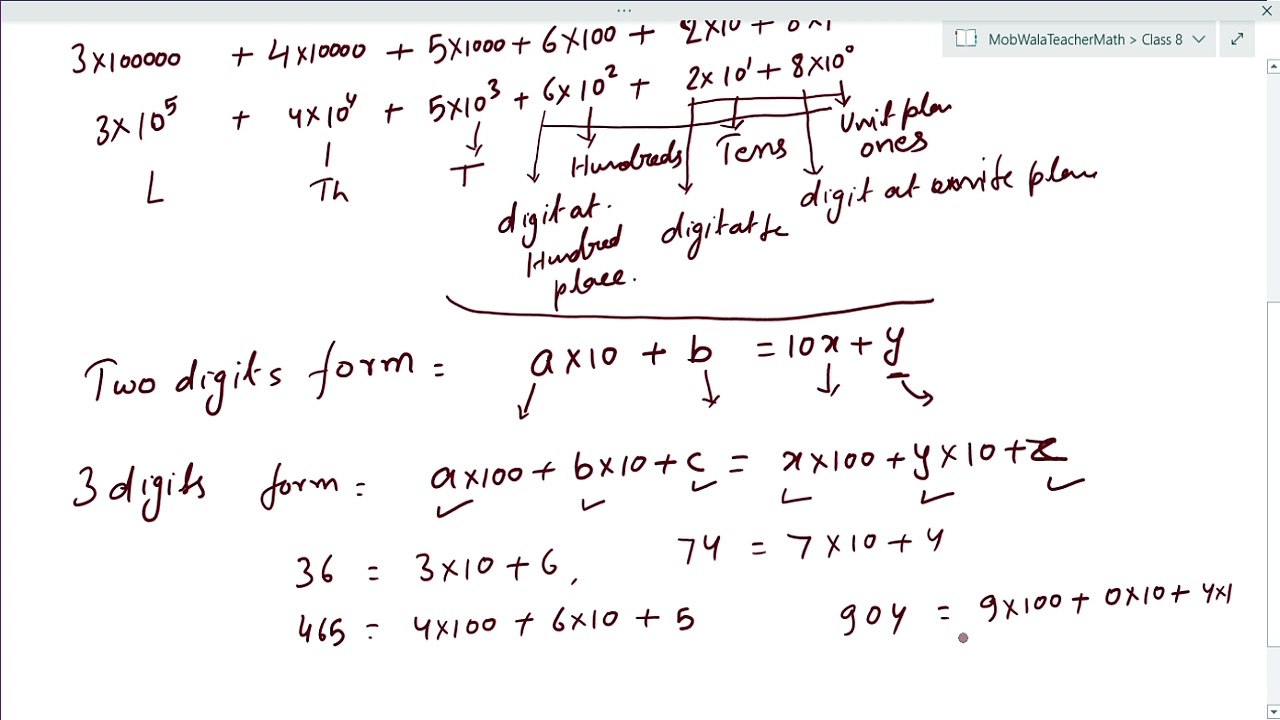 MobWalaTeacherMath > Class 8
3×100000 + 4×10000 + 5×1000 + 6×100 + 2×10 + 8×1
3×10⁵ + 4×10⁴ + 5×10³ + 6×10² + 2×10¹ + 8×10⁰
L Th T Hundreds Tens Unit plan
ones
digit at digit at digit at plan
Hundred
place.
Two digits form = a×10 + b = 10x + y
3 digits form = a×100 + b×10 + c = x×100 + y×10 + z
36 = 3×10 + 6, 74 = 7×10 + 4
465 = 4×100 + 6×10 + 5 904 = 9×100 + 0×10 + 4×1